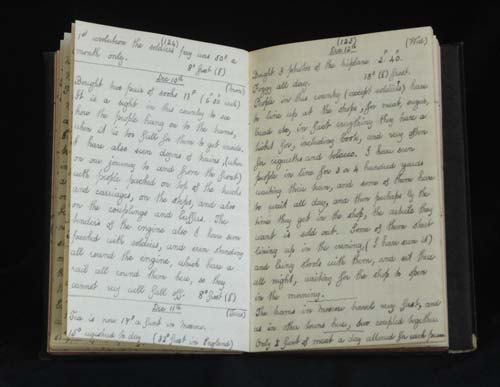 (124)
1st revolution the soldiers pay was 50° a
month only.
8° frost (F)
Dec 10th
Bought two pairs of socks 17° (6°0° each)
It is a sight in this country to see
how the people hang on to the trams,
when it is too full for them to get inside.
I have also seen dozens of trains, (when
on our journey to and from the front)
with people perched on top of the trucks
and carriages, on the steps, and also
on the couplings and buffers. The
tenders of the engine also I have seen
packed with soldiers, and even standing
all round the engine, which have a
rail all round them here, so they
cannot very well fall off. 8° frost (F)
Dec 11th
Tea is now 17° a funt in Moscow.
15° registered to day (22° frost in England)
(125)
Dec 12th
(Wed)
Bought 3 photos of the biplane 2°40°.
18° (F) frost.
Foggy all day.
People in this country (except soldiers) have
to line up at the shops, for meat, sugar,
bread etc, in fact everything they have a
ticket for, including books, and very often
for cigarettes and tobacco. I have seen
people in line for 3 or 4 hundred yards
waiting their turn, and some of them have
to wait all day, and then perhaps by the
time they get in the shop, the article they
want is sold out. Some of them start
lining up in the evening, (I have seen it)
and bring stools with them, and sit there
all night, waiting for the shop to open
in the morning.
The trams in Moscow travel very fast, and
as in other towns here, two coupled together.
Only 2 funt of meat a day allowed for each person